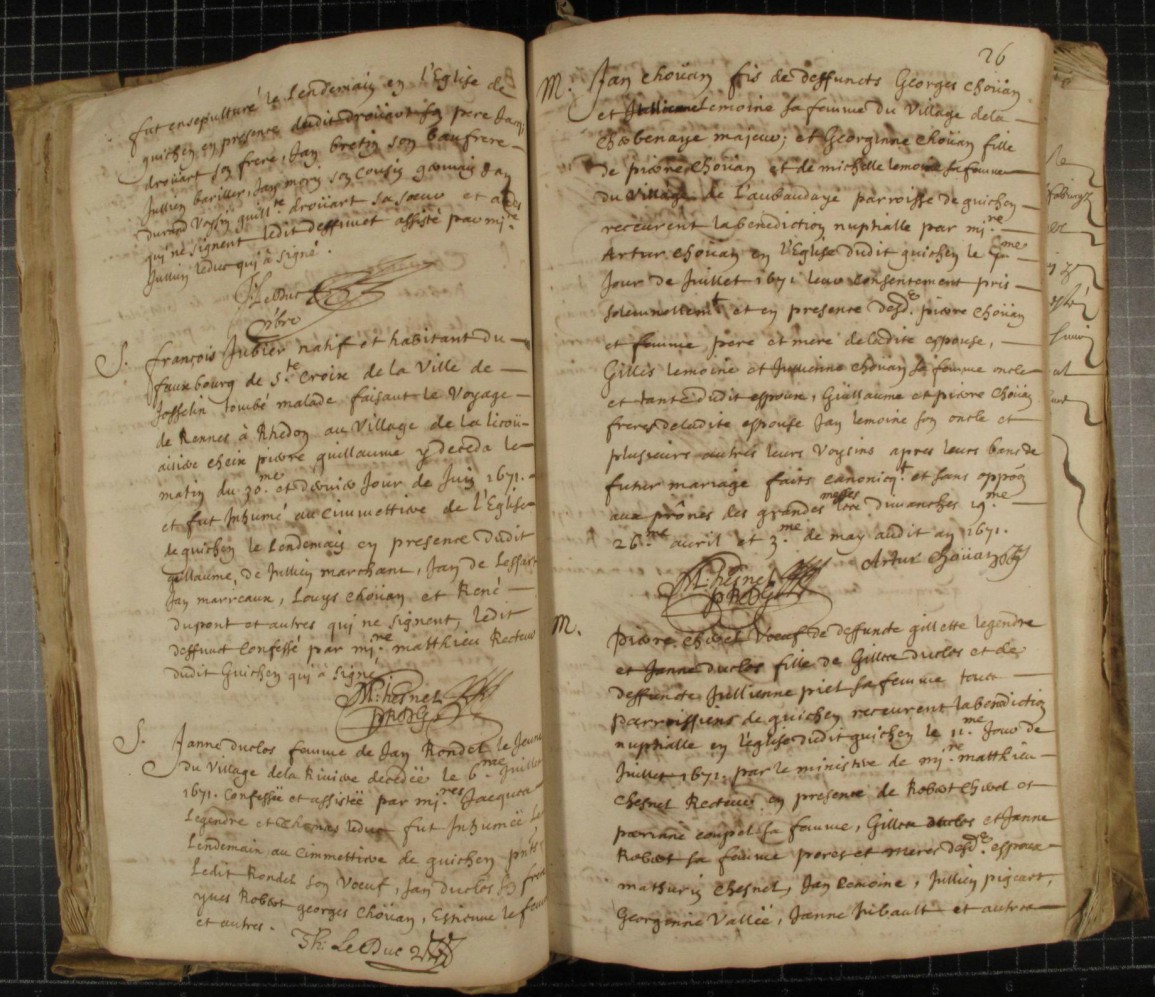 fut ensepulturé le Lendemain en l'Eglise de
guichen en presence dudit droüart son pere Jacq
droüart son frere, Jan bretin son baufrere
Jullien bariller, Jan mary son Cousin germain Jan
durand Voysin guill.te droüart sa soeur et autres
qui ne signent ledit deffunct assisté par mi.re
Jullien leduc qui a signé.
J. LeDuc
p.bre
S. françois Jubier natif et habitant du
faux bourg de S.te Croix de la Ville de
Josselin tombé malade faisant le Voyage
de Rennes à Rhedon au Village de la
cheix pierre guillaume y deceda le
matin du 30.me et dernier Jour de Juin 1671.
et fut Inhumé au Cimmettiere de l'Eglise
de guichen le Lendemain en presence dudit
guillaume, de Jullien marchant, Jan de Lessart
Jan marreaux, Louys Choüan et René
dupont et autres qui ne signent, ledit
deffunct Confessé par mi.re matthieu Recteur
dudit Guichen qui à Signé
M: Chesnel
S. Janne duclos femme de Jan Rondel le Jeune
du Village de la Riviere decedée le 6.me Juillet
1671. Confessée et assistée par mi.res Jacques
Legendre et Thomas leduc fut Inhumée le
Lendemain au Cimmettiere de guichen pnts
Ledit Rondel son Voeuf, Jan duclos son frere
yves Robert georges Choüan, Estienne le feuv
et autres.
Th: Le Duc
26
M. Jan Choüan fis de deffuncts Georges Choüan
et Jullienne Lemoine sa femme du Village de la
Chabenaye majeur; et Georginne Choüan fille
de pierre Choüan et de michelle lemoine sa femme
du Village de l'aubaudaye parroisse de guichen
receurent la benediction nuptialle par mi.re
Artur Choüan en l'Eglise dudit guichen le
Jour de Juillet 1671 leur consentement pris
solemnellem.t et en presence desd. pierre Choüan
et femme pere et mere de ladite espouse,
Gilles lemoine et Jullienne Choüan sa femme
et tante dudit espoux, Guillaume et pierre Choüan
freres de ladite espouse Jan lemoine son oncle et
plusieurs autres leurs Voysins apres leurs bans de
futur mariage faits canoniq.t et sans oppõn
aux prônes des grandes messes dimanches 19.me
26.me avril et 3.me de may audit an 1671.
Artur Choüan
M: Chesnel
M. pierre Chevel Voeuf de deffuncte gillette legendre
et Janne duclos fille de Gilles duclos et de
deffuncte Jullienne piel sa femme tous
parroissiens de guichen receurent la benediction
nuptialle en l'eglise dudit guichen le 11.me Jour de
Juillet 1671. par le ministere de mi.re matthieu
Chesnel Recteur en presence de Robert Chevel et
perrine coupel sa femme, Gilles duclos et Janne
Robert sa femme peres et meres desd. espoux
mathurin Chesnel, Jan Lemoine, Jullien pigeart,
Georginne Vallée, Janne Jubault et autres